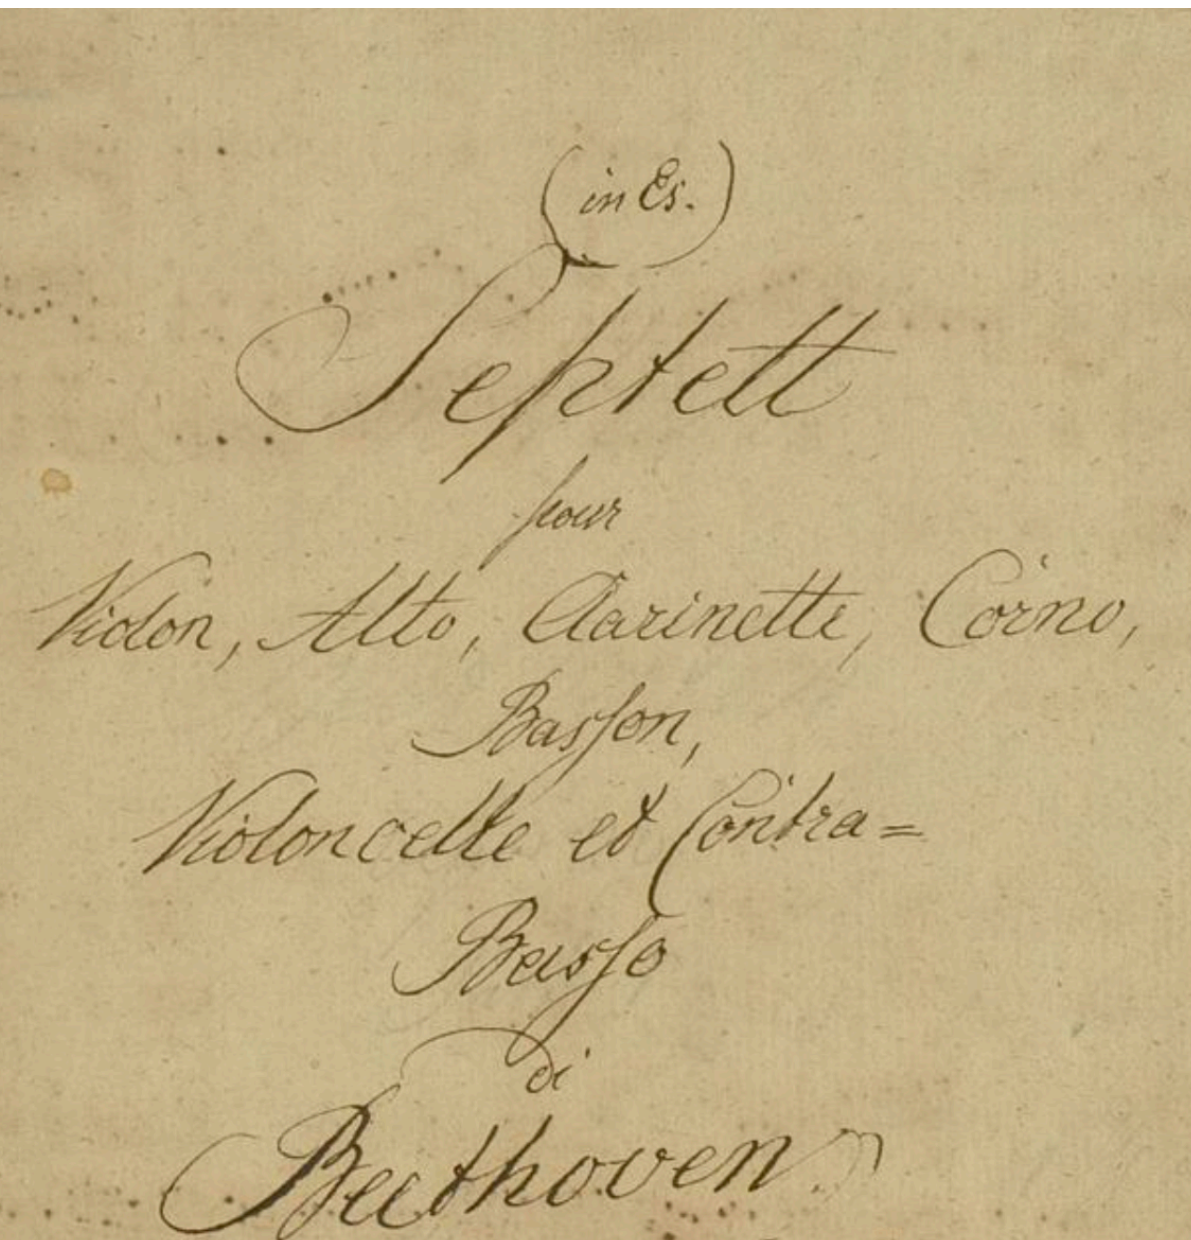 (in Es.)
Septett
pour
Violon, Alto, Clarinette, Corno,
Basson,
Violoncelle et Contra=
Basso
di
Beethoven